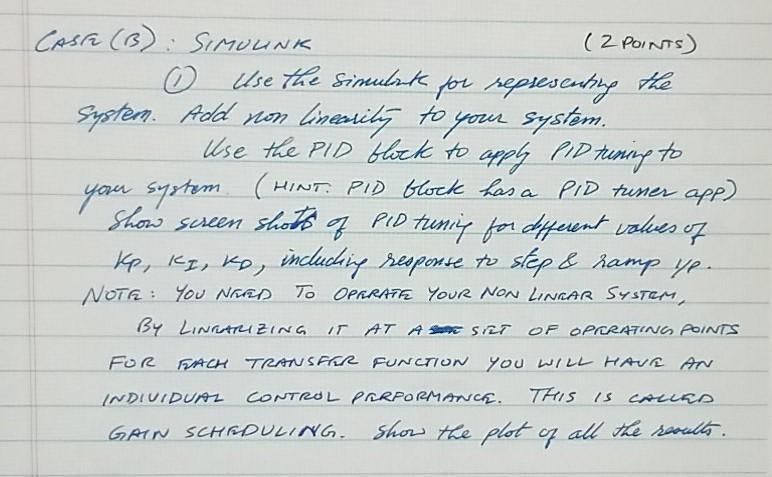 CASE (B) : SIMULINK (2 POINTS)
① Use the Simulink for representing the
System. Add non linearity to your system.
Use the PID block to apply PID tuning to
your system. (HINT: PID block has a PID tuner app)
Show screen shots of PID tuning for different values of
KP, KI, KD, including response to step & ramp i/p.
NOTE: YOU NEED TO OPERATE YOUR NON LINEAR SYSTEM,
BY LINEARIZING IT AT A SET OF OPERATING POINTS
FOR EACH TRANSFER FUNCTION YOU WILL HAVE AN
INDIVIDUAL CONTROL PERFORMANCE. THIS IS CALLED
GAIN SCHEDULING. Show the plot of all the results.